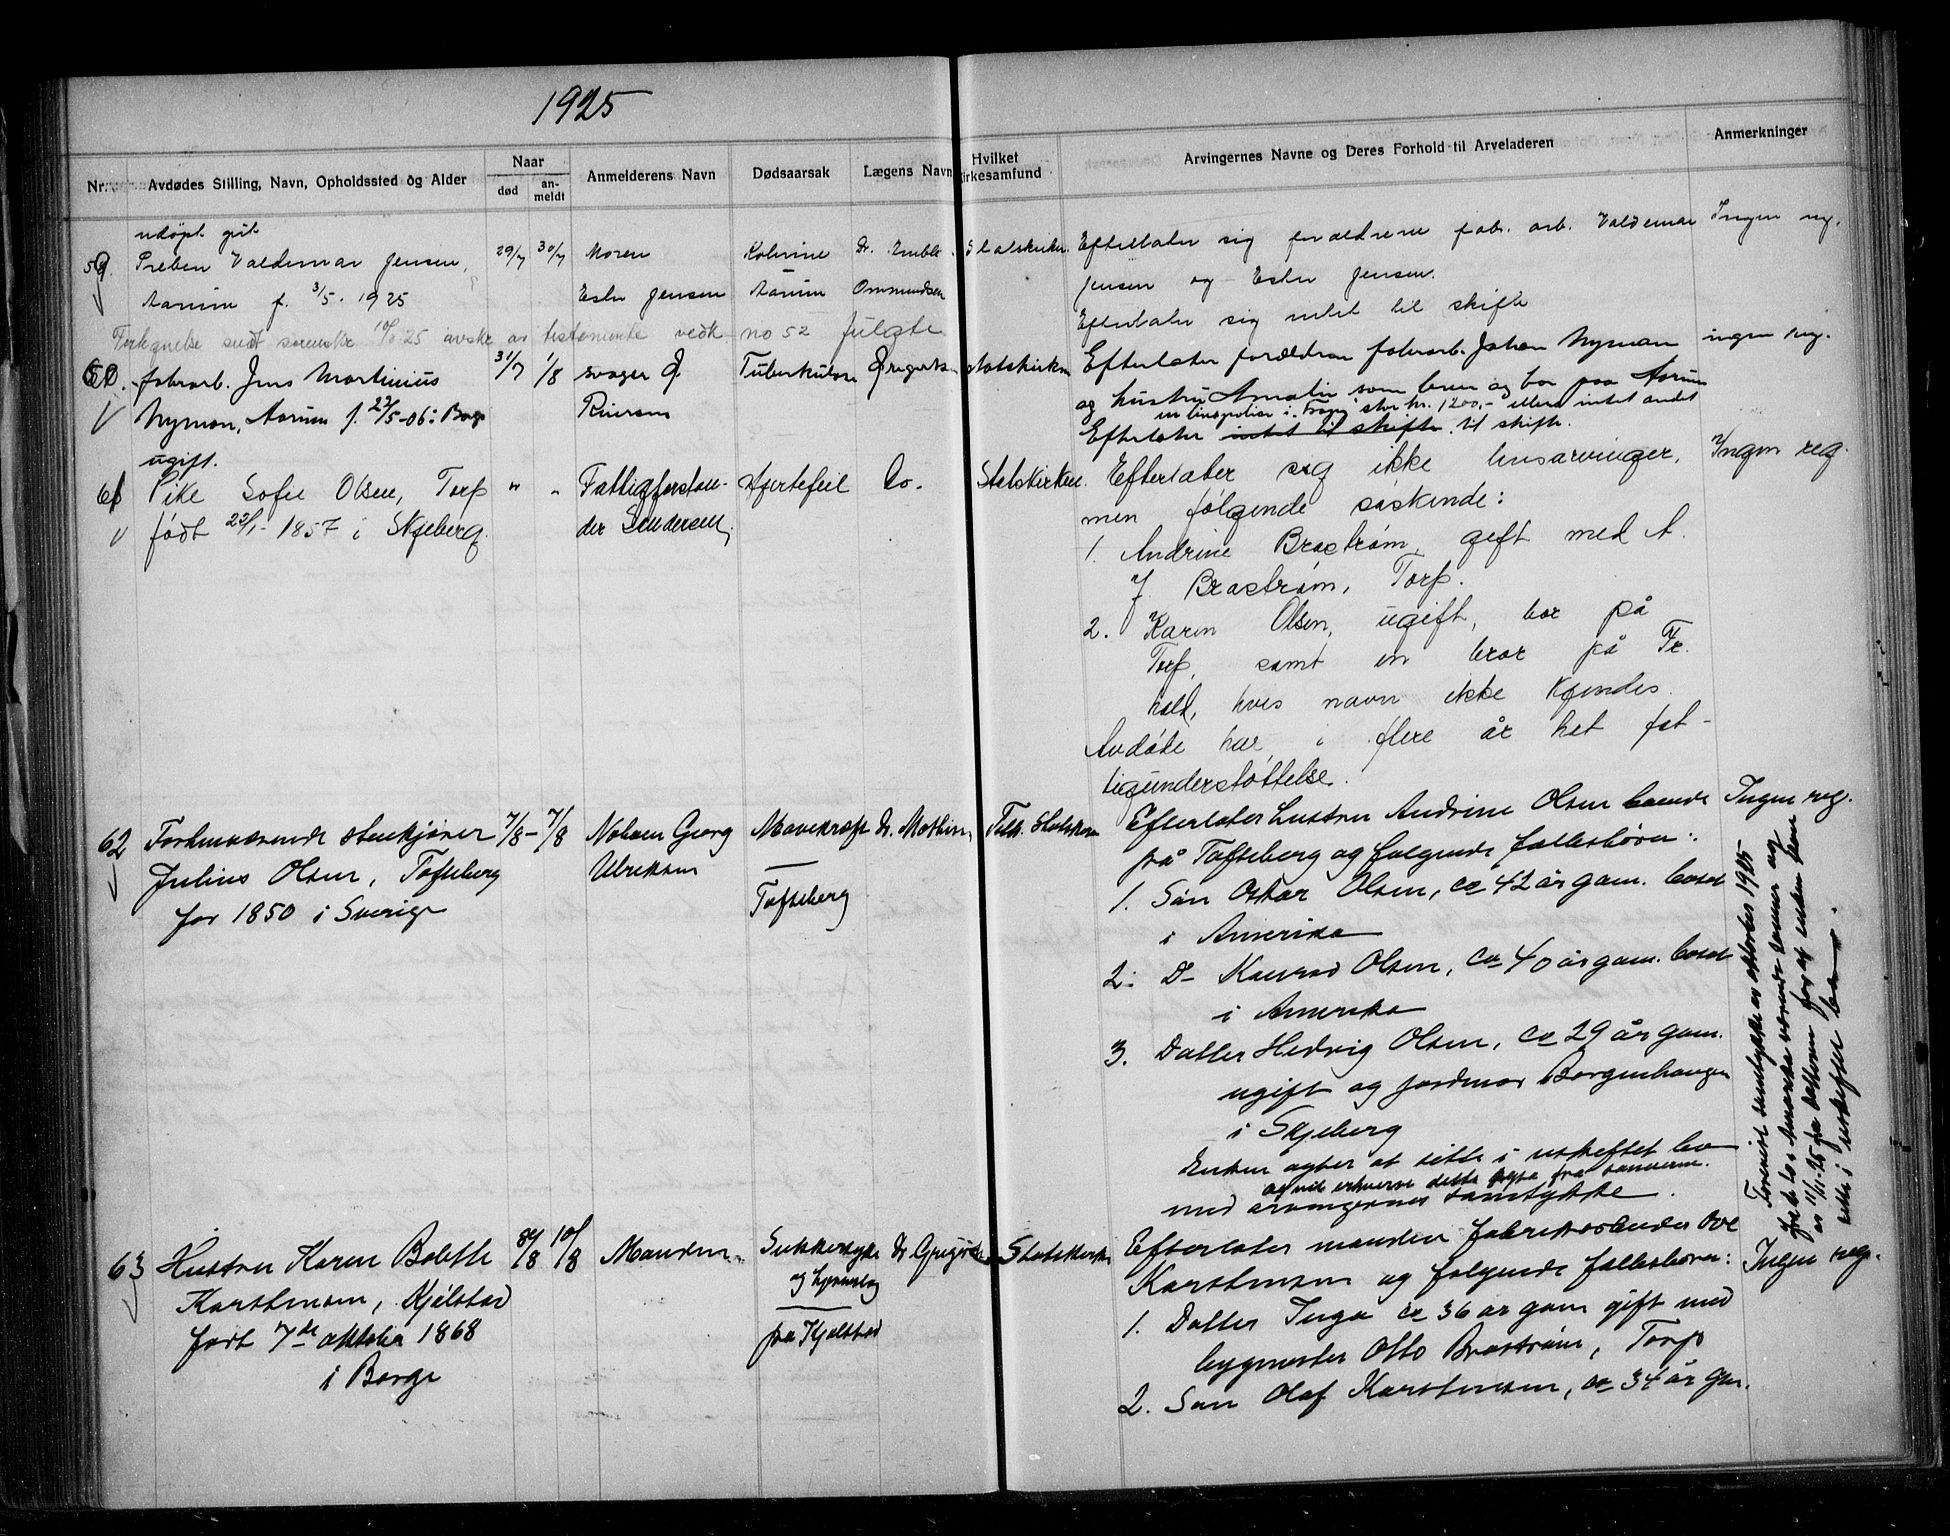 1925
Nr.
Avdødes Stilling, Navn, Opholdssted og Alder
Naar
død
an-
meldt
Anmelderens Navn
Dødsaarsak
Lægens Navn
Hvilket
irkesamfund
Arvingernes Navne og Deres Forhold til Arveladeren
Anmerkninger
udøpt gut
59. Preben Valdemar Jensen,
Aarum f. 3/5. 1925
29/7 30/7
Moren
Ester Jensen
Kolerine
Aarum
Dr. Emble
Ommundsen
Statskirken
Efterlater sig forældrene fab. arb. Valdemar
Jensen og Ester Jensen.
Efterlater sig intet til skifte
Ingen reg.
10/8 25 avskr av testamente vedk no 52
60. fabrarb. Jens Martinius
Nyman, Aarum f. 22/5-06 i Borge
ugift.
31/7 1/8
svager
Tuberkulose
Gregertsen
Statskirken
Efterlater forældrene fabrarb. Johan Nyman
og hustru Amalie som lever og bor paa Aarum
en livspolise i stor kr. 1200,- ellers intet andet
Efterlater intet til skifte. til skifte.
ingen reg.
61 Pike Sofie Olsen, Torp
født 22/1-1857 i Skjeberg.
" "
Fattigforstan-
der Sendersen,
Hjertefeil
Do.
Statskirken.
Efterlater sig ikke livsarvinger,
men følgende søskende:
1. Andrine Brostrøm, gift med A.
J. Brostrøm, Torp.
2. Karen Olsen, ugift, bor på
Torp, samt en bror på Fr.
hald, hvis navn ikke kjendes.
Avdøde har i flere år hat fat-
tigunderstøttelse.
Ingen reg.
62 Forhenværende stenkjører
Julius Olsen, Tofteberg
før 1850 i Sverige
7/8 - 7/8
Naboen Georg
Ulriksen
Mavekræft
Tofteberg
Dr. Mathisen
Statskirken
Efterlater hustru Andrine Olsen boende
på Tofteberg og følgende fællesbørn:
1. Søn Oskar Olsen, ca 42 år gam. bosat
i Amerika
2. D- Konrad Olsen, ca 40 år gam. bosat
i Amerika
3. Datter Hedvig Olsen, ca 29 år gam.
ugift og jordmor Borgenhaugen
i Skjeberg
Enken agter at sitte i uskiftet bo
og vil erhverve dette fra sønnerne.
med arvingernes samtykke.
Ingen reg.
Forevist samtykke av oktober 1925
fra de to i Amerika værende sønner og
av 11/11-25 fra datteren for at enken kan
sitte i uskiftet bo.
63 Hustru Karen Bolette
Karstensen, Kjølstad
født 7de oktober 1868
i Borge
8/8 10/8
Manden
Sukkersyke
og
fra Kjølstad
Dr Gregertsen
Statskirken
Efterlater manden fabrikarbeider Ove
Karstensen og følgende fællesbørn:
1. Datter Inga ca 36 år gam gift med
bygmester Otto Brostrøm, Torp
2. Søn Olaf Karstensen, ca 34 år gam.
Ingen reg.